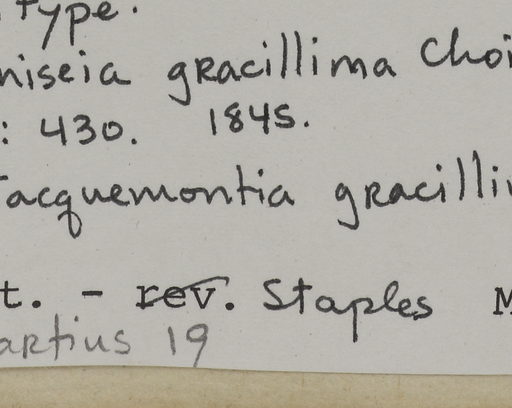 type.
niseia gracillima Choi
: 430. 1845.
Jacquemontia gracillim
t. - rev. Staples M
artius 19